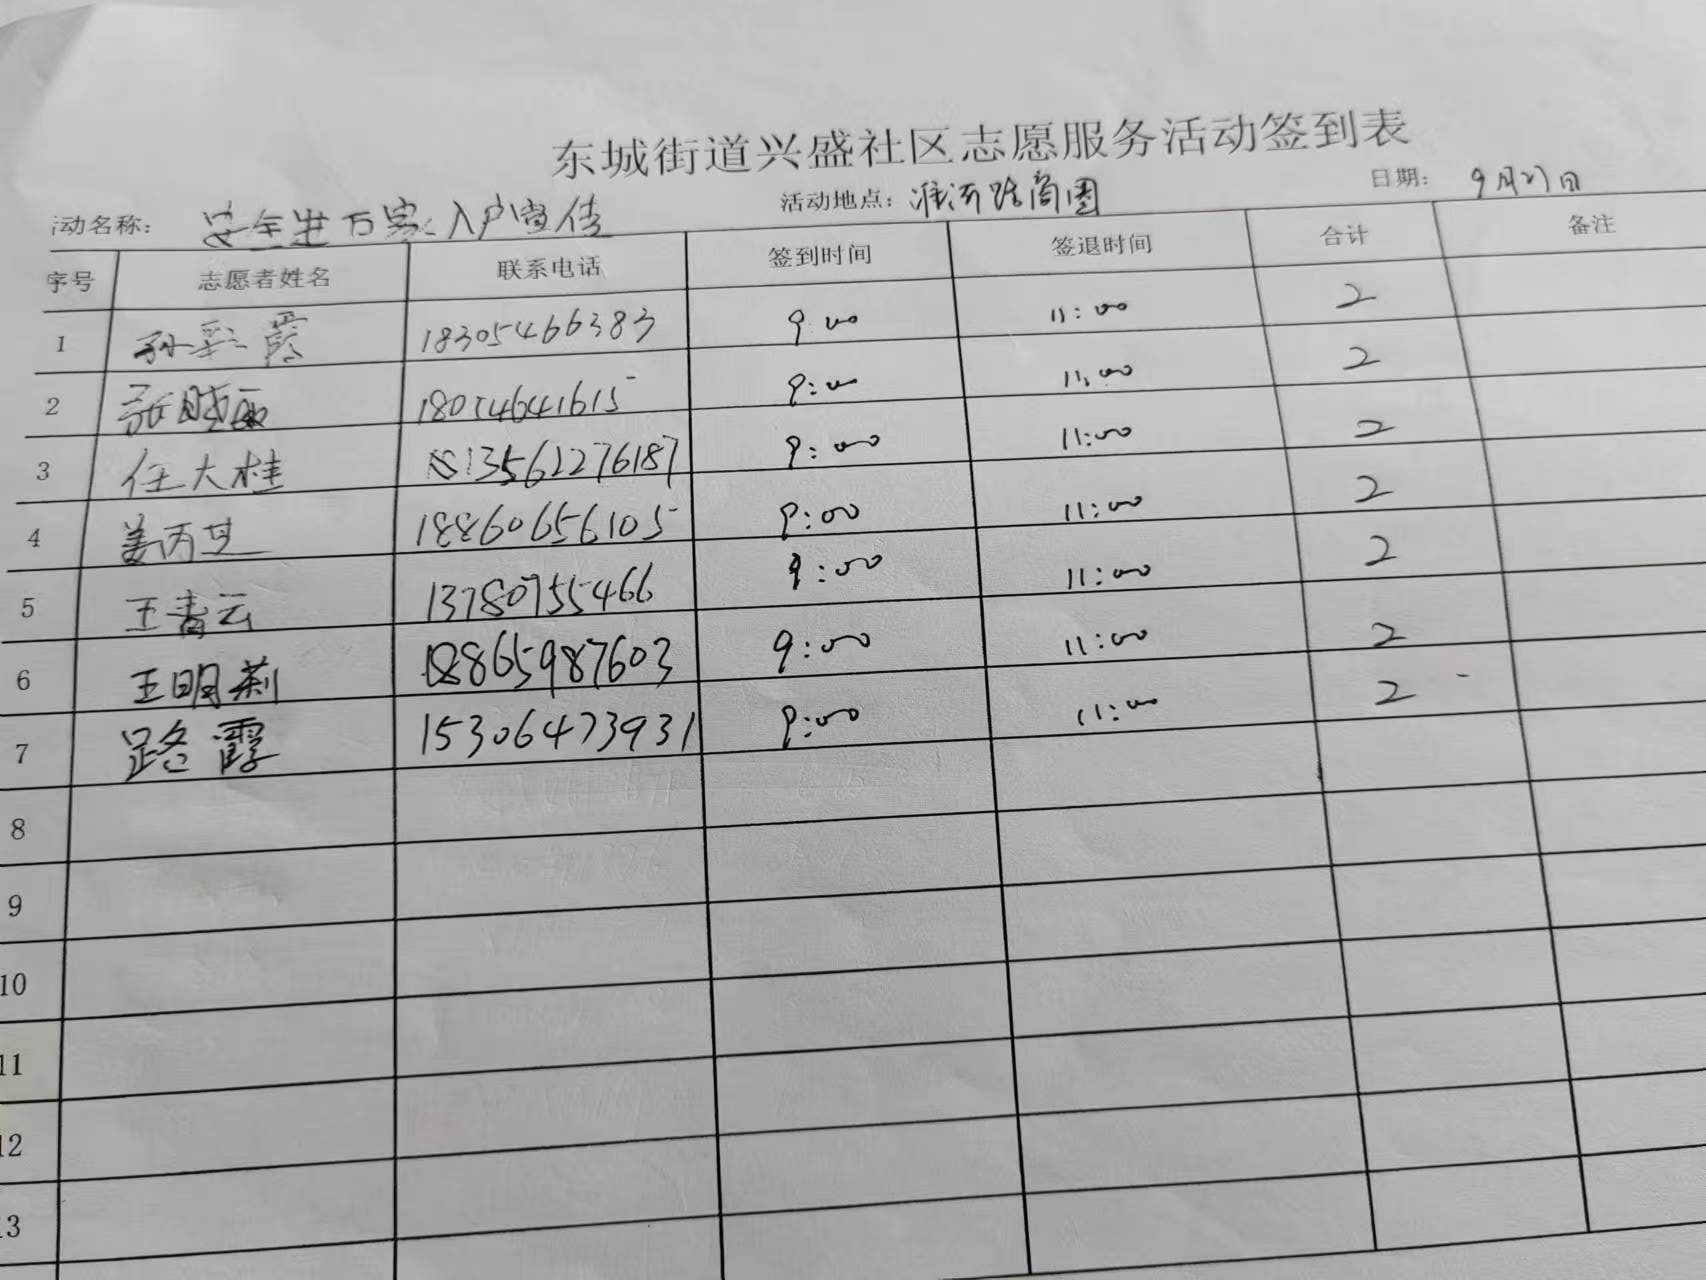 东城街道兴盛社区志愿服务活动签到表
动名称: 安全进万家入户宣传 活动地点: 淮河路商圈 日期: 9月21日
序号 志愿者姓名 联系电话 签到时间 签退时间 合计 备注
1 孙彩霞 18305466383 9:00 11:00 2
2 张晓丽 18054641615 9:00 11:00 2
3 任大桂 13561276187 9:00 11:00 2
4 姜丙芝 18860656105 9:00 11:00 2
5 王青云 13780755466 9:00 11:00 2
6 王明莉 18865987603 9:00 11:00 2
7 路霞 15306473931 9:00 11:00 2
8
9
10
11
12
13